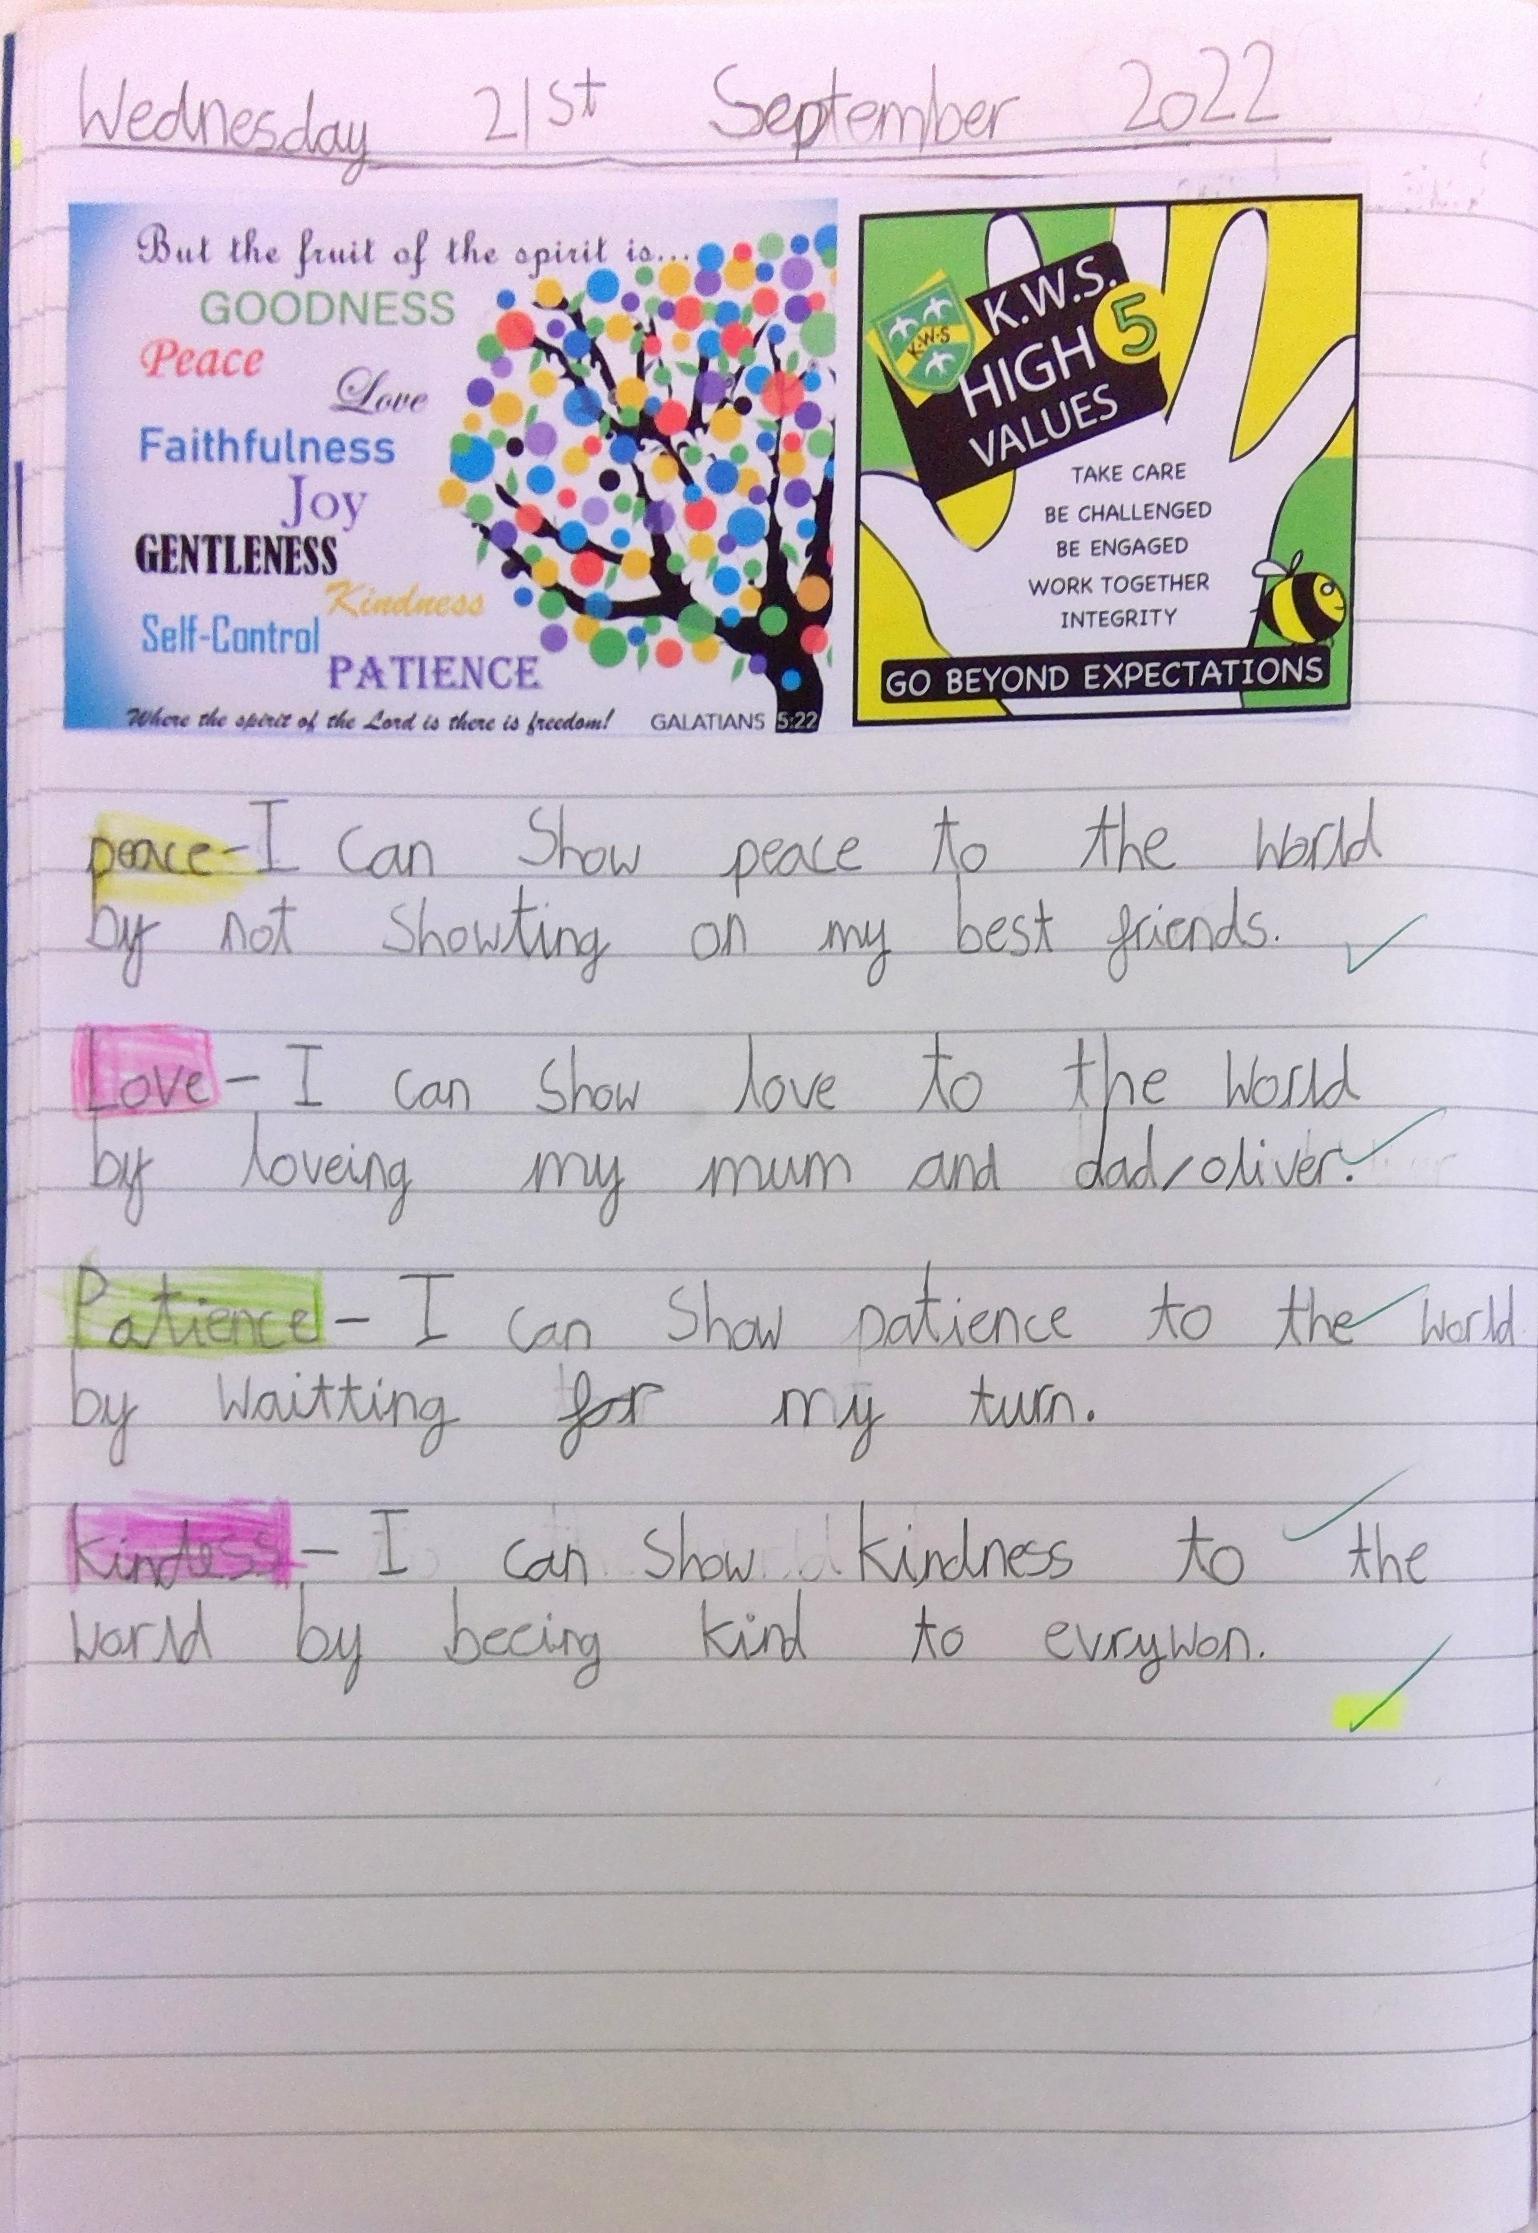 Wednesday 21st September 2022
But the fruit of the spirit is...
GOODNESS
Peace
Love
Faithfulness
Joy
GENTLENESS
Kindness
Self-Control
PATIENCE
Where the spirit of the Lord is there is freedom! GALATIANS 5:22
K.W.S
K.W.S.
HIGH 5
VALUES
TAKE CARE
BE CHALLENGED
BE ENGAGED
WORK TOGETHER
INTEGRITY
GO BEYOND EXPECTATIONS
peace-I can Show peace to the World
by not Showting on my best friends.
Love - I can Show love to the World
by loveing my mum and dad/oliver.
Patience - I can Show patience to the World
by Waitting for my turn.
kindess - I can Show kindness to the
World by beeing kind to evrywon.